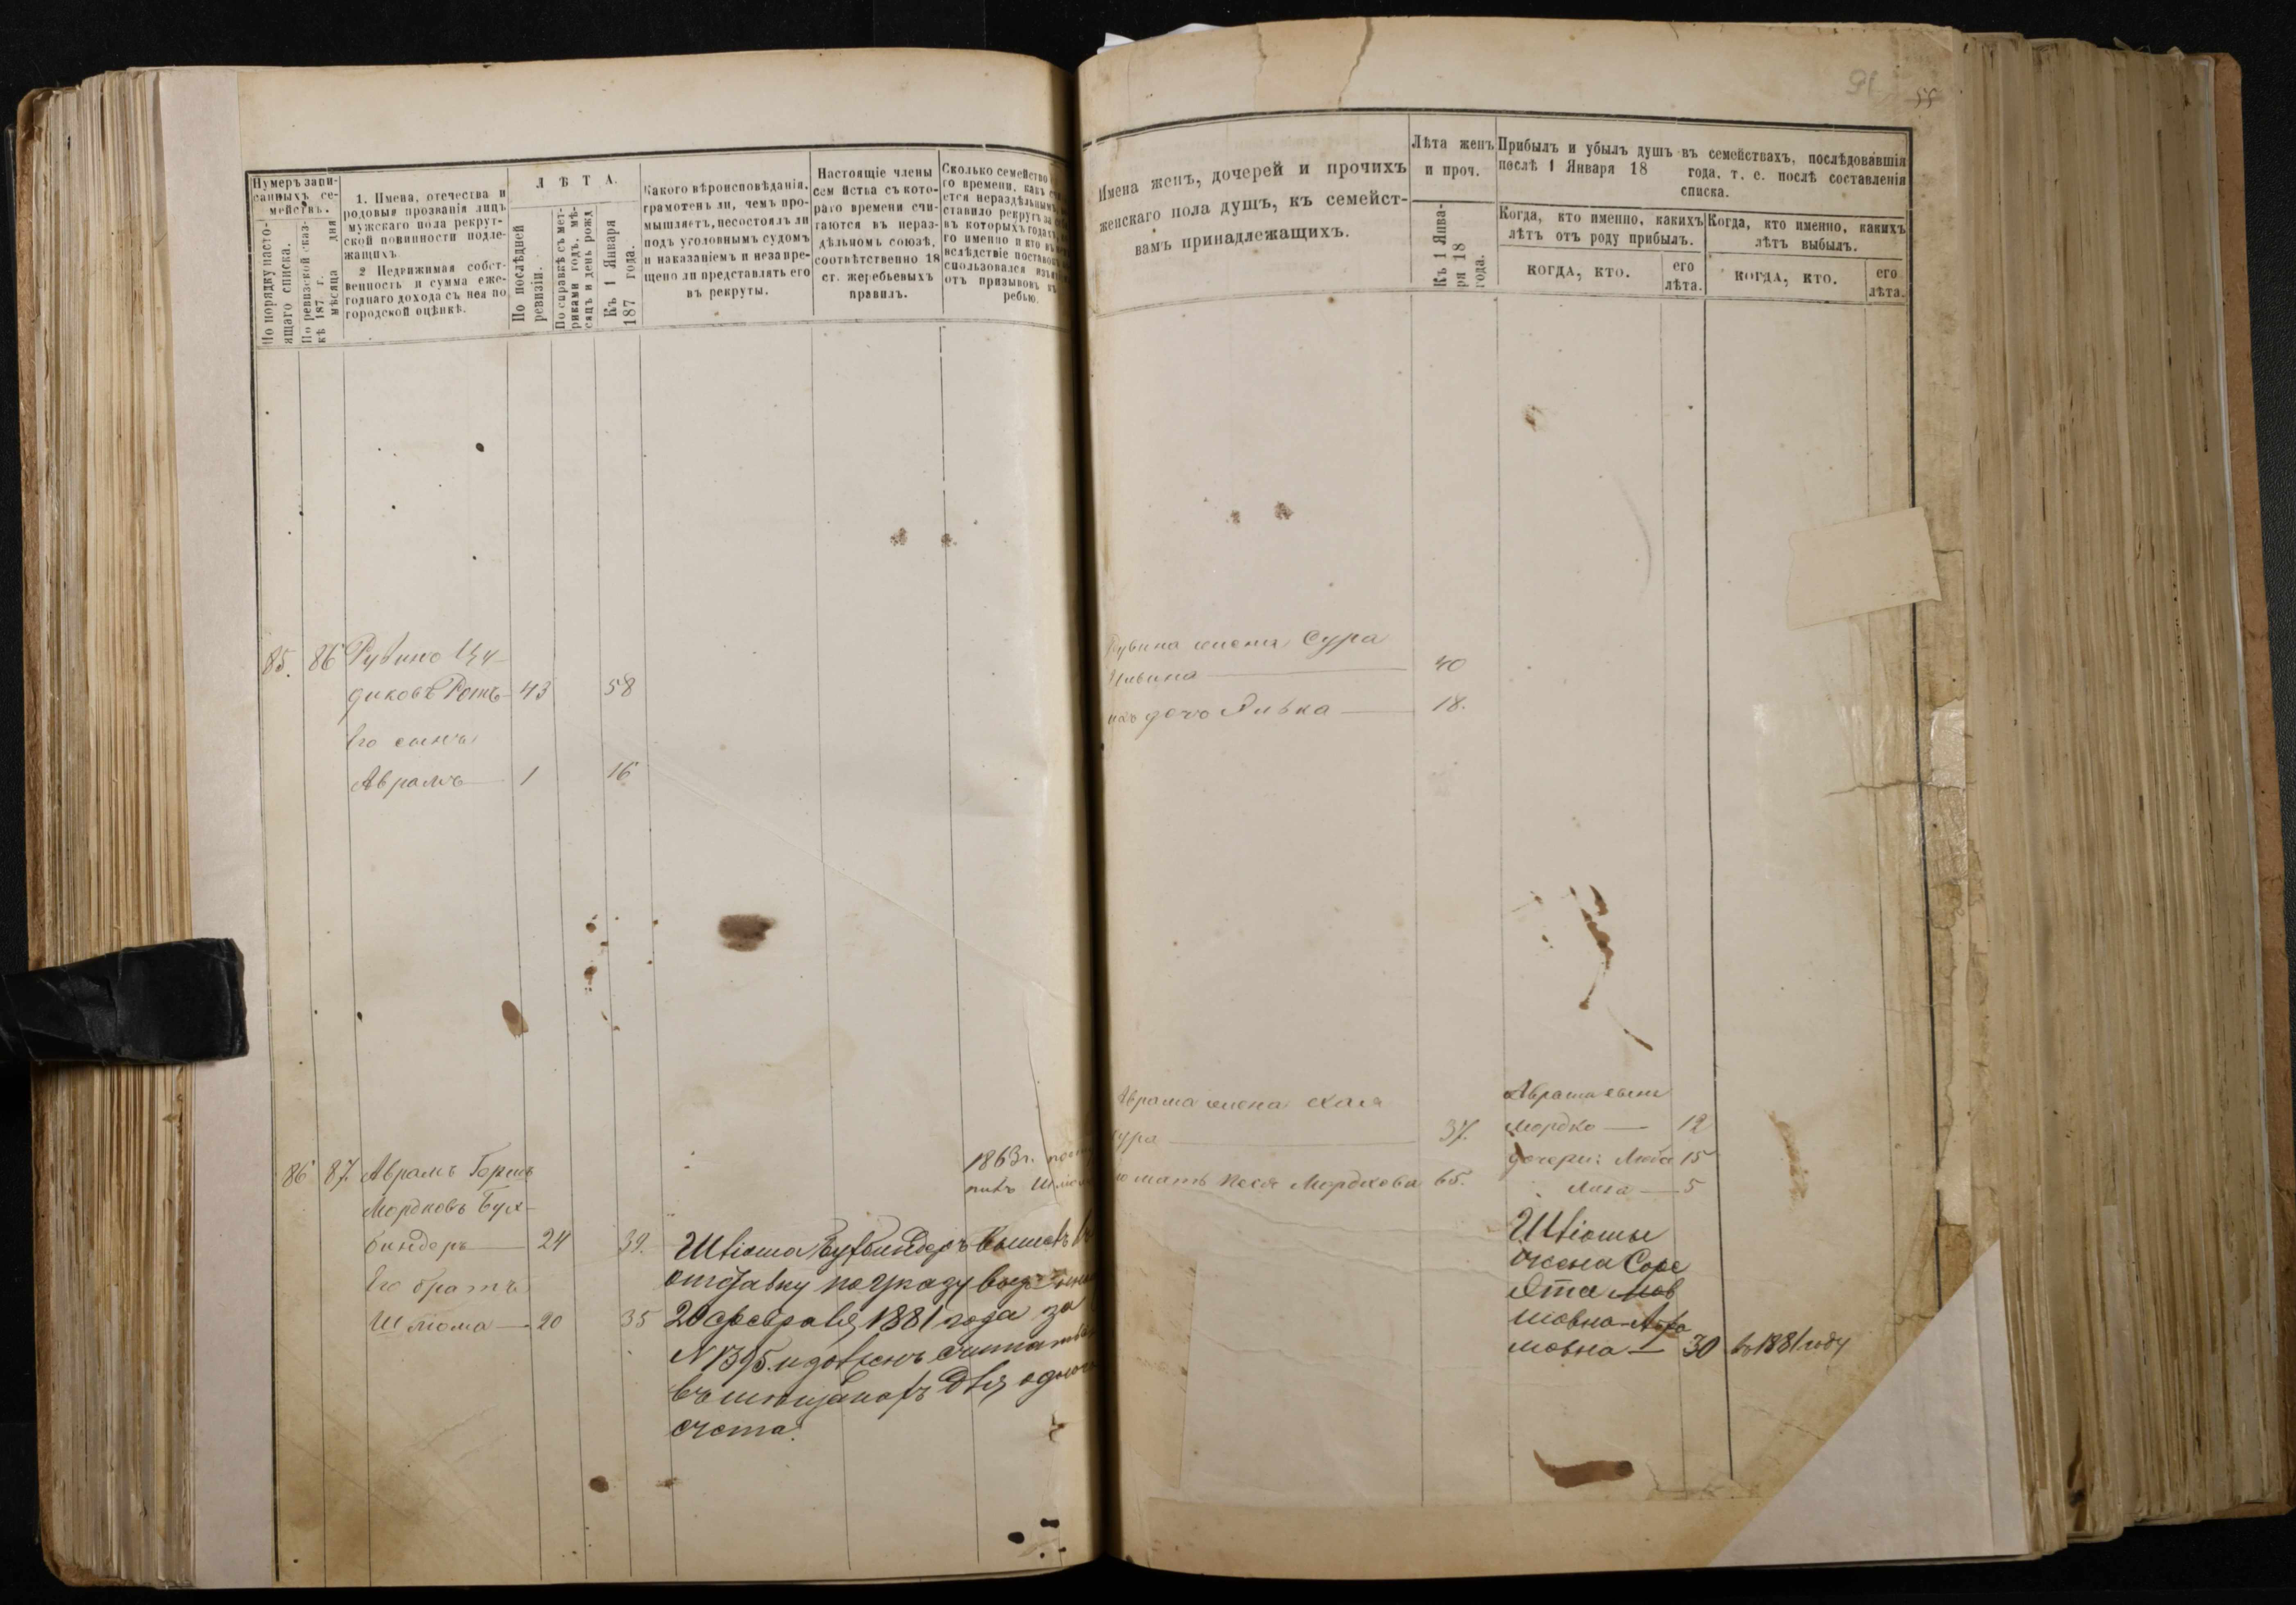 Нумеръ запи-
санныхъ се-
мействъ.
По порядку насто-
ящаго списка.
По ревизской сказ-
кѣ 187 г. дня
мѣсяца
1. Имена, отечества и
родовыя прозванія лицъ
мужскаго пола рекрут-
ской повинности подле-
жащихъ
2 Недвижимая собст-
венность и сумма еже-
годнаго дохода съ нея по
городской оцѣнкѣ.
ЛѢТА.
По послѣдней
ревизіи.
По справкѣ съ мет-
риками годъ, мѣ-
сяцъ и день рожд
Къ 1 Января
187 года.
Какого вѣроисповѣданія.
грамотенъ ли, чемъ про-
мышляетъ, несостоялъ ли
подъ уголовнымъ судомъ
и наказаніемъ и незапре-
щено ли представлять его
въ рекруты.
Настоящіе члены
сем йства съ кото-
раго времени счи-
таются въ нераз-
дѣльномъ союзѣ,
соотвѣтственно 18
ст. жеребьевыхъ
правилъ.
Сколько семейство
го времени, какъ
ется нераздѣльнымъ
ставило рекрутъ за
въ которыхъ годахъ
го именно и кто
вслѣдствіе
спользовался
отъ призывовъ къ
ребью.
85. 86 Рувинъ Цу-
диковъ Ротъ 43 58
Его сынъ
Аврамъ 1 16
86 87. Аврамъ Гершъ
Мордковъ Бух-
биндеръ 24 39.
Его братъ
Шлюма 20 35
1863г.
Шлиома Бухбиндеръ вышелъ въ
отставку по указу
20 февраля 1881 года за
N 1395. и долженъ считаться
въ мѣщанахъ для одного
счета.
91
55
Имена женъ, дочерей и прочихъ
женскаго пола душъ, къ семейст-
вамъ принадлежащихъ.
Лѣта женъ
и проч.
Къ 1 Янва-
ря 18
года.
Прибылъ и убылъ душъ въ семействахъ, послѣдовавшія
послѣ 1 Января 18 года, т. е. послѣ составленія
списка.
Когда, кто именно, какихъ
лѣтъ отъ роду прибылъ.
КОГДА, КТО.
его
лѣта.
Когда, кто именно, какихъ
лѣтъ выбылъ.
КОГДА, КТО.
его
лѣта.
Рувина жена Сура
40
дочь Ривка 18.
Аврама жена Хая
Сура 37.
мать Песя Мордкова 65.
Аврама сынъ
Мордко 12
дочери: Люба 15
Лиза 5
Шліомы
жена Соре
Ита Мов
шовна Абра
мовна 30 въ 1881 году